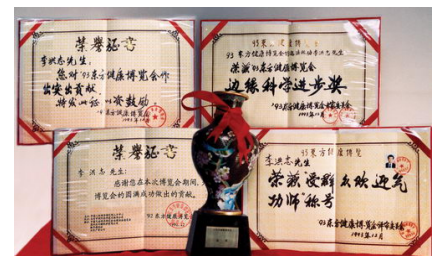 荣誉证书
李洪志先生：
您对'93东方健康博览会作
出突出贡献.
特发此证 以资鼓励
'93东方健康博览会
1993年12月
'93东方健康博览会
荣获'93东方健康博览会
边缘科学进步奖
'93东方健康博览会评审委员会
1993年12月
荣誉证书
李洪志先生：
感谢您在本次博览会期间,
博览会的圆满成功做出的贡献.
'93东方健康博览会
93东方健康博览
李洪志先生：
荣获"受群众欢迎气
功师"称号
'93东方健康博览会评审委员会
1993年12月